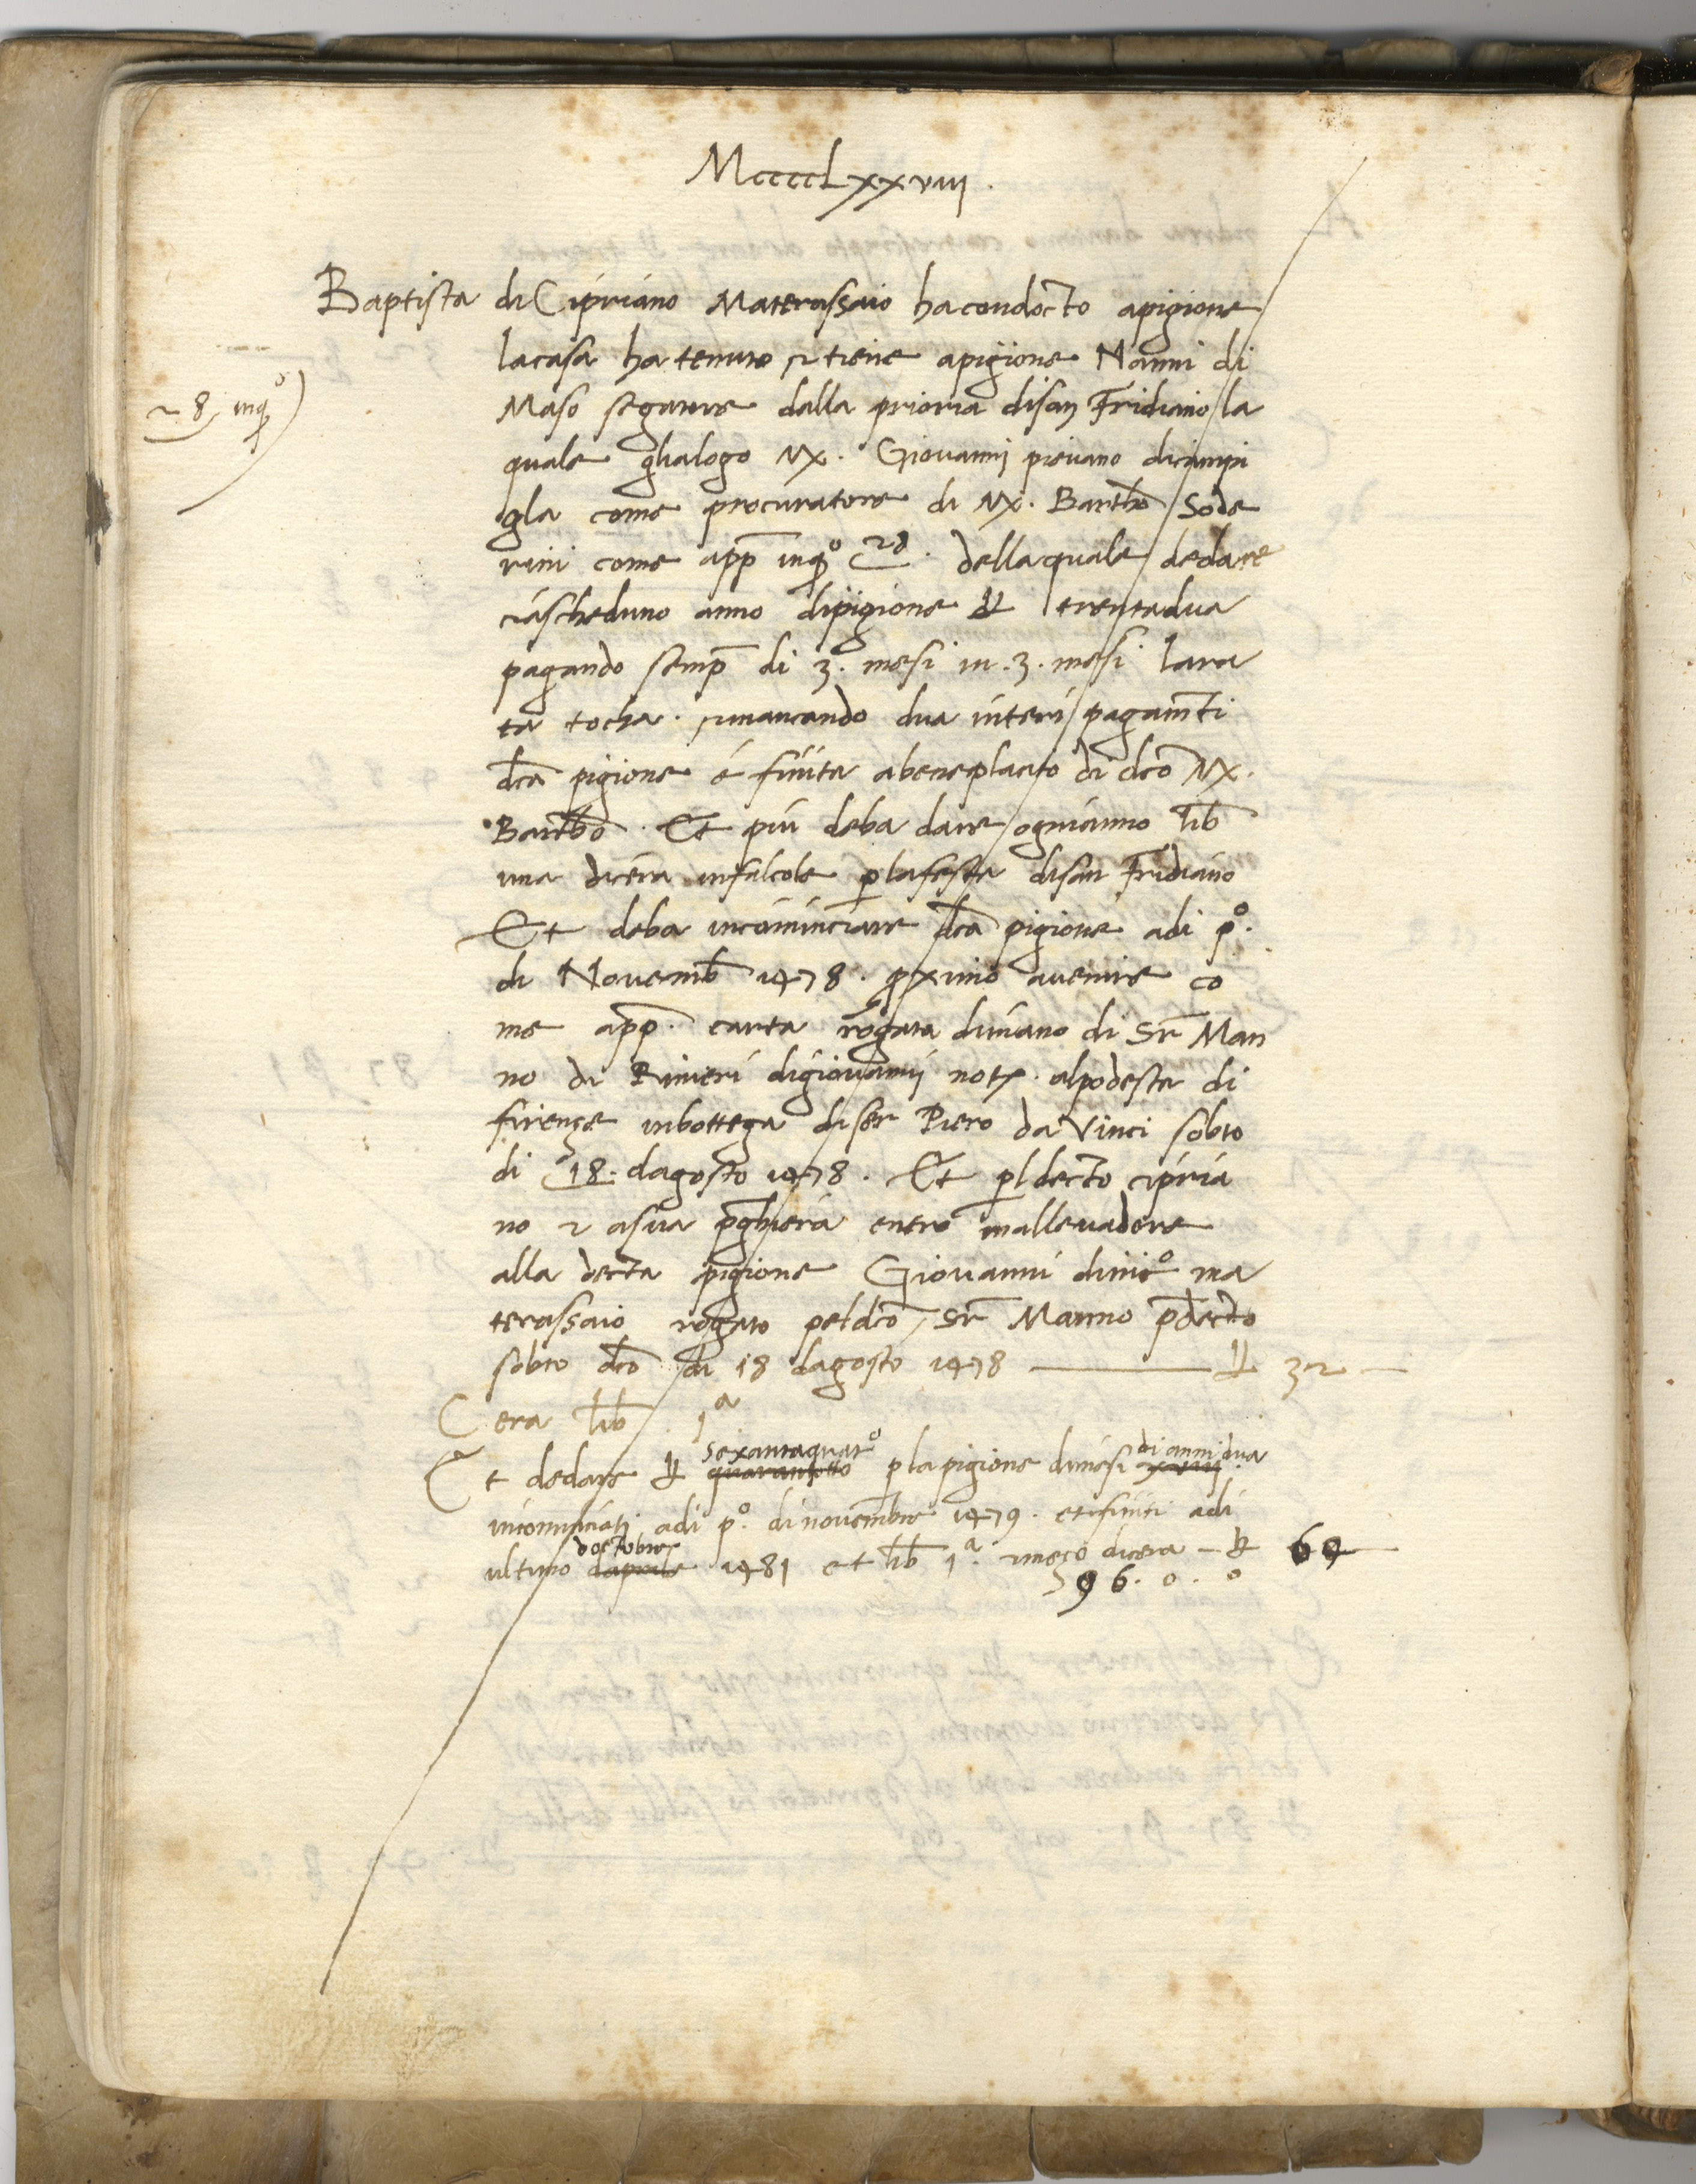 MccccLxxviij.
Baptista di Cipriano Materassaio ha condocto apigione
lacasa ha tenuto et tiene apigione Nanni di
Maso segatore dalla prioria disan Fridiano la
28 inqo
quale ghalogo Mx. Giovannj pievano dicimpi
gla come procuratore di Mx. Bartho Sode
rini come app inqo 28. dellaquale dedare
ciascheduno anno dipigione £ trentadua
pagando semp di 3. mesi in .3. mesi lara
ta tocha. et mancando dua interi pagamti
dca pigione é finita abeneplacito di dco Mx.
Bartho. Et piu deba dare ognianno lib
una dicera infalcole p lafesta disan Fridiano
Et deba incominciare dca pigione adi po.
di Novemb 1478. proximo avenire co
me app. carta rogata dimano di Sr Man
no di Rinieri digiovannj notx. alpodesta di
firenze inbottega diser Piero da Vinci sobto
di 18. dagosto 1478. Et pl decto cipria
no et asua pghiera entro mallevadore
alla decta pigione Giovanni dinico ma
terassaio rogato peldco Sr Manno pdecto
sobto dco di 18 dagosto 1478 — £ 32 —
Cera lib 1a
sexantaquatro di anni dua
Et dedare £ quarantotto p lapigione dimesi xviij
incominciati adi po. dinovembre 1479. et finiti adi
doctobre
ultimo daprile 1481 et lib 1a. et mezo dicera — £ 64 —
96. 0. 0